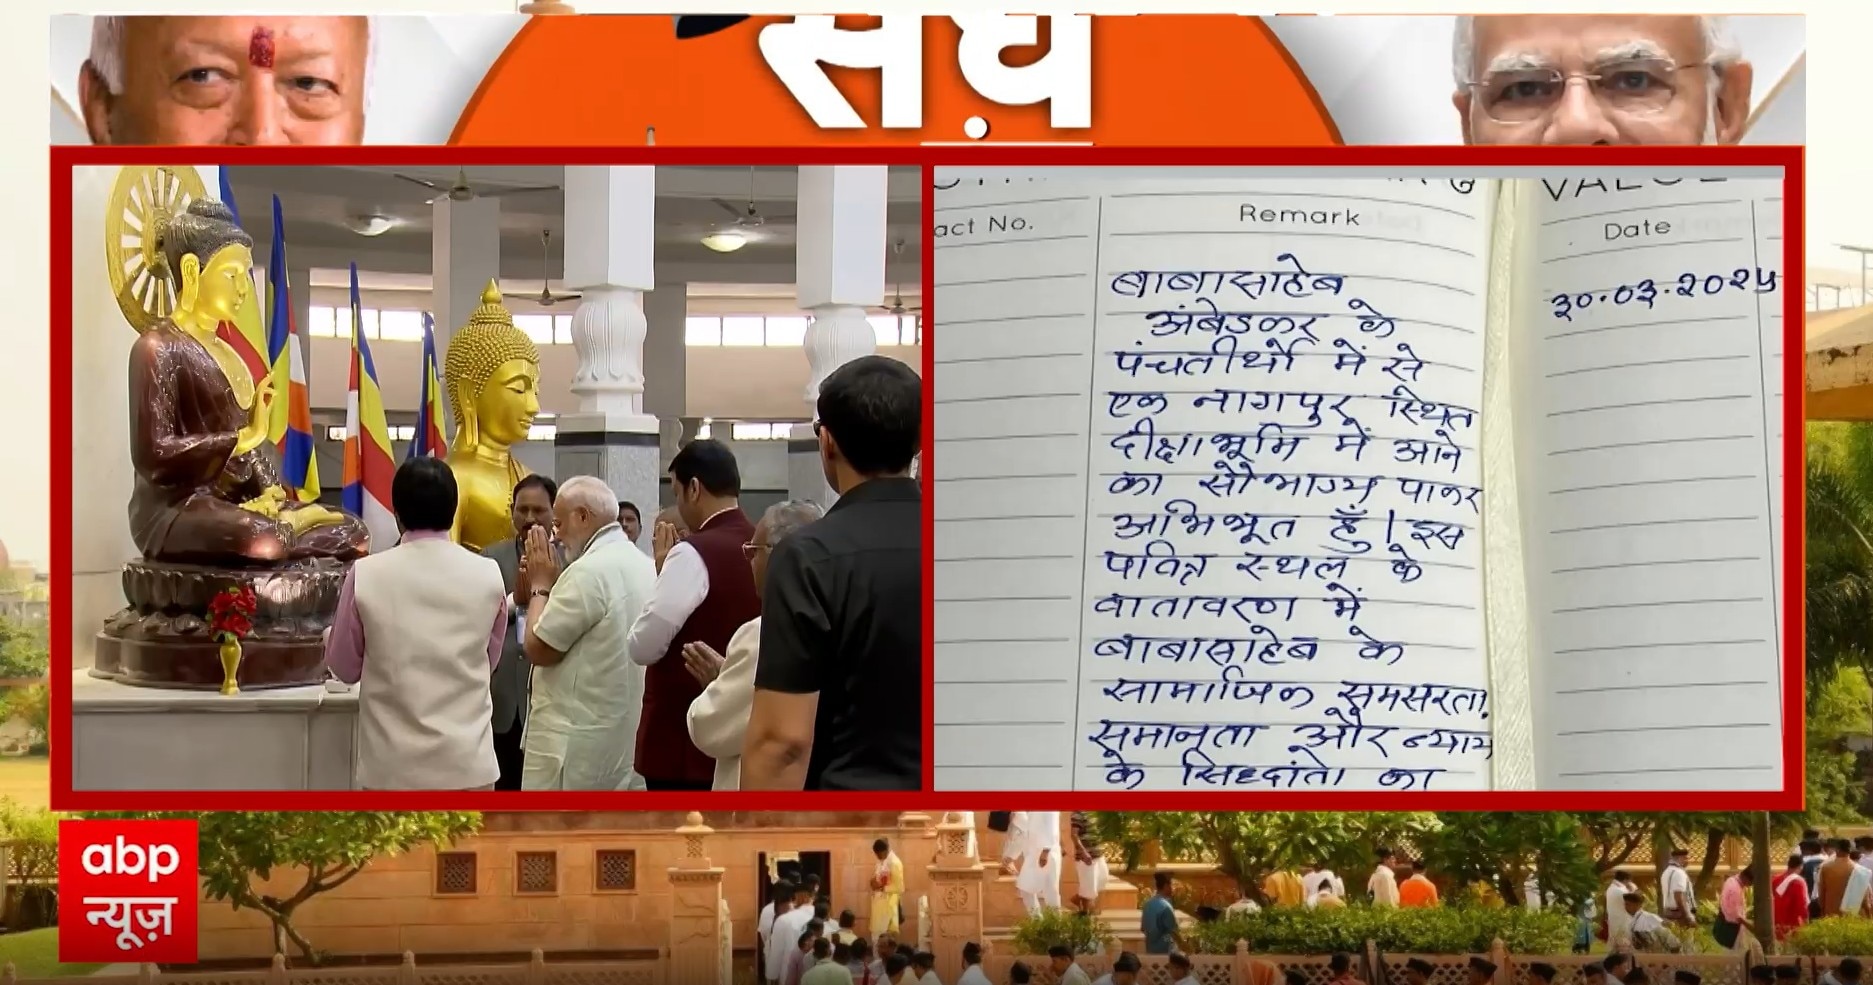 संघ
act No.
Remark
Date
बाबासाहेब
अंबेडकर के
पंचतीर्थो में से
एक नागपुर स्थित
दीक्षाभूमि में आने
का सौभाग्य पाकर
अभिभूत हूँ। इस
पवित्र स्थल के
वातावरण में
बाबासाहेब के
सामाजिक समसरता,
समानता और न्याय
के सिद्दांतो का
३०.०३.२०२५
abp
न्यूज़